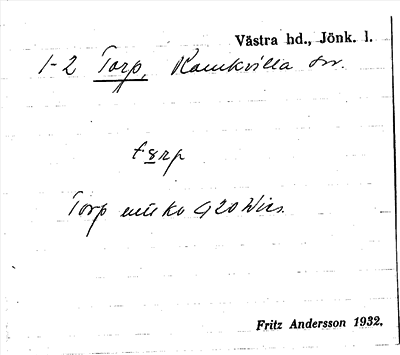 Västra hd., Jönk. l.
1-2 Torp, Ramkvilla sn.
tɤrp
Torp enst ko G20 Wirs.
Fritz Andersson 1932.